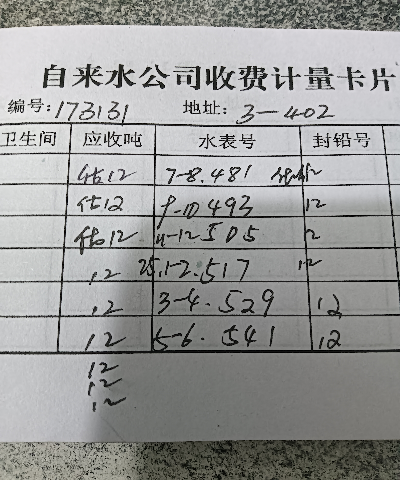 自来水公司收费计量卡片
编号: 173131 地址: 3-402
卫生间 应收吨 水表号 封铅号
估12 7-8.481
估12 9-10 493 12
估12 11-12.505 2
12 25.1-2.517 12
12 3-4.529 12
12 5-6.541 12
12
12
12